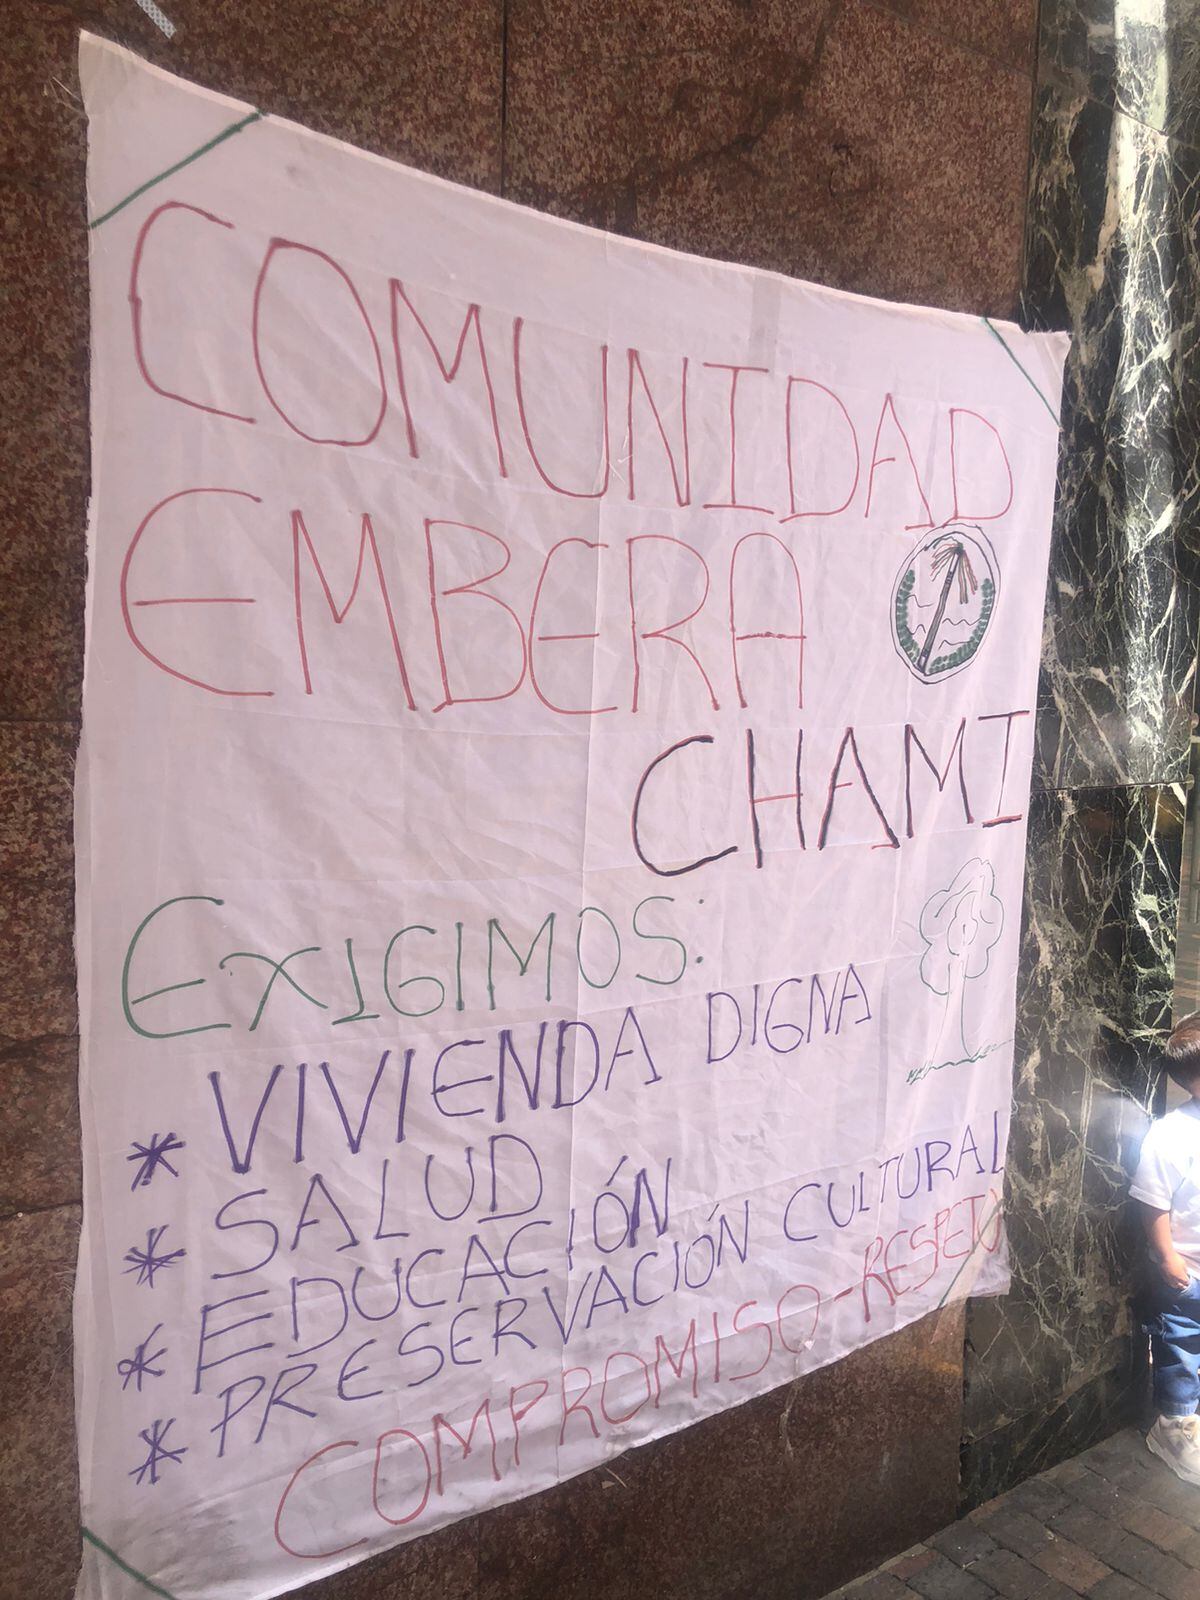 COMUNIDAD
EMBERA
CHAMI
EXIGIMOS:
* VIVIENDA DIGNA
* SALUD
* EDUCACIÓN
* PRESERVACIÓN CULTURAL
COMPROMISO-RESPETO